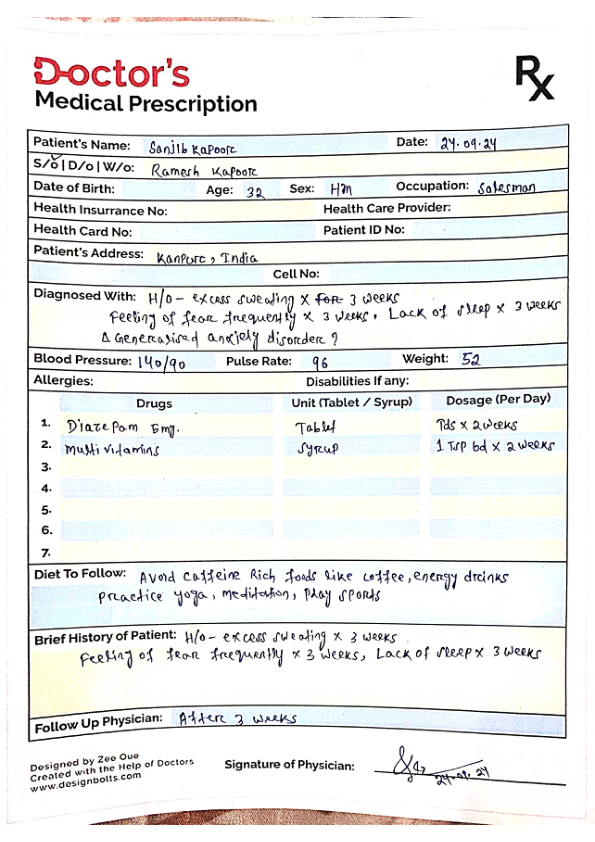 Doctor's
Rx
Medical Prescription
Patient's Name: Sanjib Kapoor Date: 24.09.24
S/o | D/o | W/o: Ramesh Kapoor
Date of Birth: Age: 32 Sex: Occupation: Salesman
Health Insurrance No: Health Care Provider:
Health Card No: Patient ID No:
Patient's Address: Kanpur, India
Cell No:
Diagnosed With: H/O - excess sweating x for 3 weeks
Feeling of fear frequently x 3 weeks, Lack of sleep x 3 weeks
Δ Generalised anxiety disorder ?
Blood Pressure: 140/90 Pulse Rate: 96 Weight: 52
Allergies: Disabilities If any:
Drugs Unit (Tablet / Syrup) Dosage (Per Day)
1. Diazepam mg. Tablet Tds x 2 weeks
2. Multivitamins Syrup 1 Tsp bd x 2 weeks
3.
4.
5.
6.
7.
Diet To Follow: Avoid caffeine Rich foods like coffee, energy drinks
Practice yoga, meditation, play sports
Brief History of Patient: H/o - excess sweating x 3 weeks
Feeling of fear frequently x 3 weeks, Lack of sleep x 3 weeks
Follow Up Physician: After 3 weeks
Designed by Zee Que
Created with the Help of Doctors
www.designbolts.com
Signature of Physician: 24.09.24